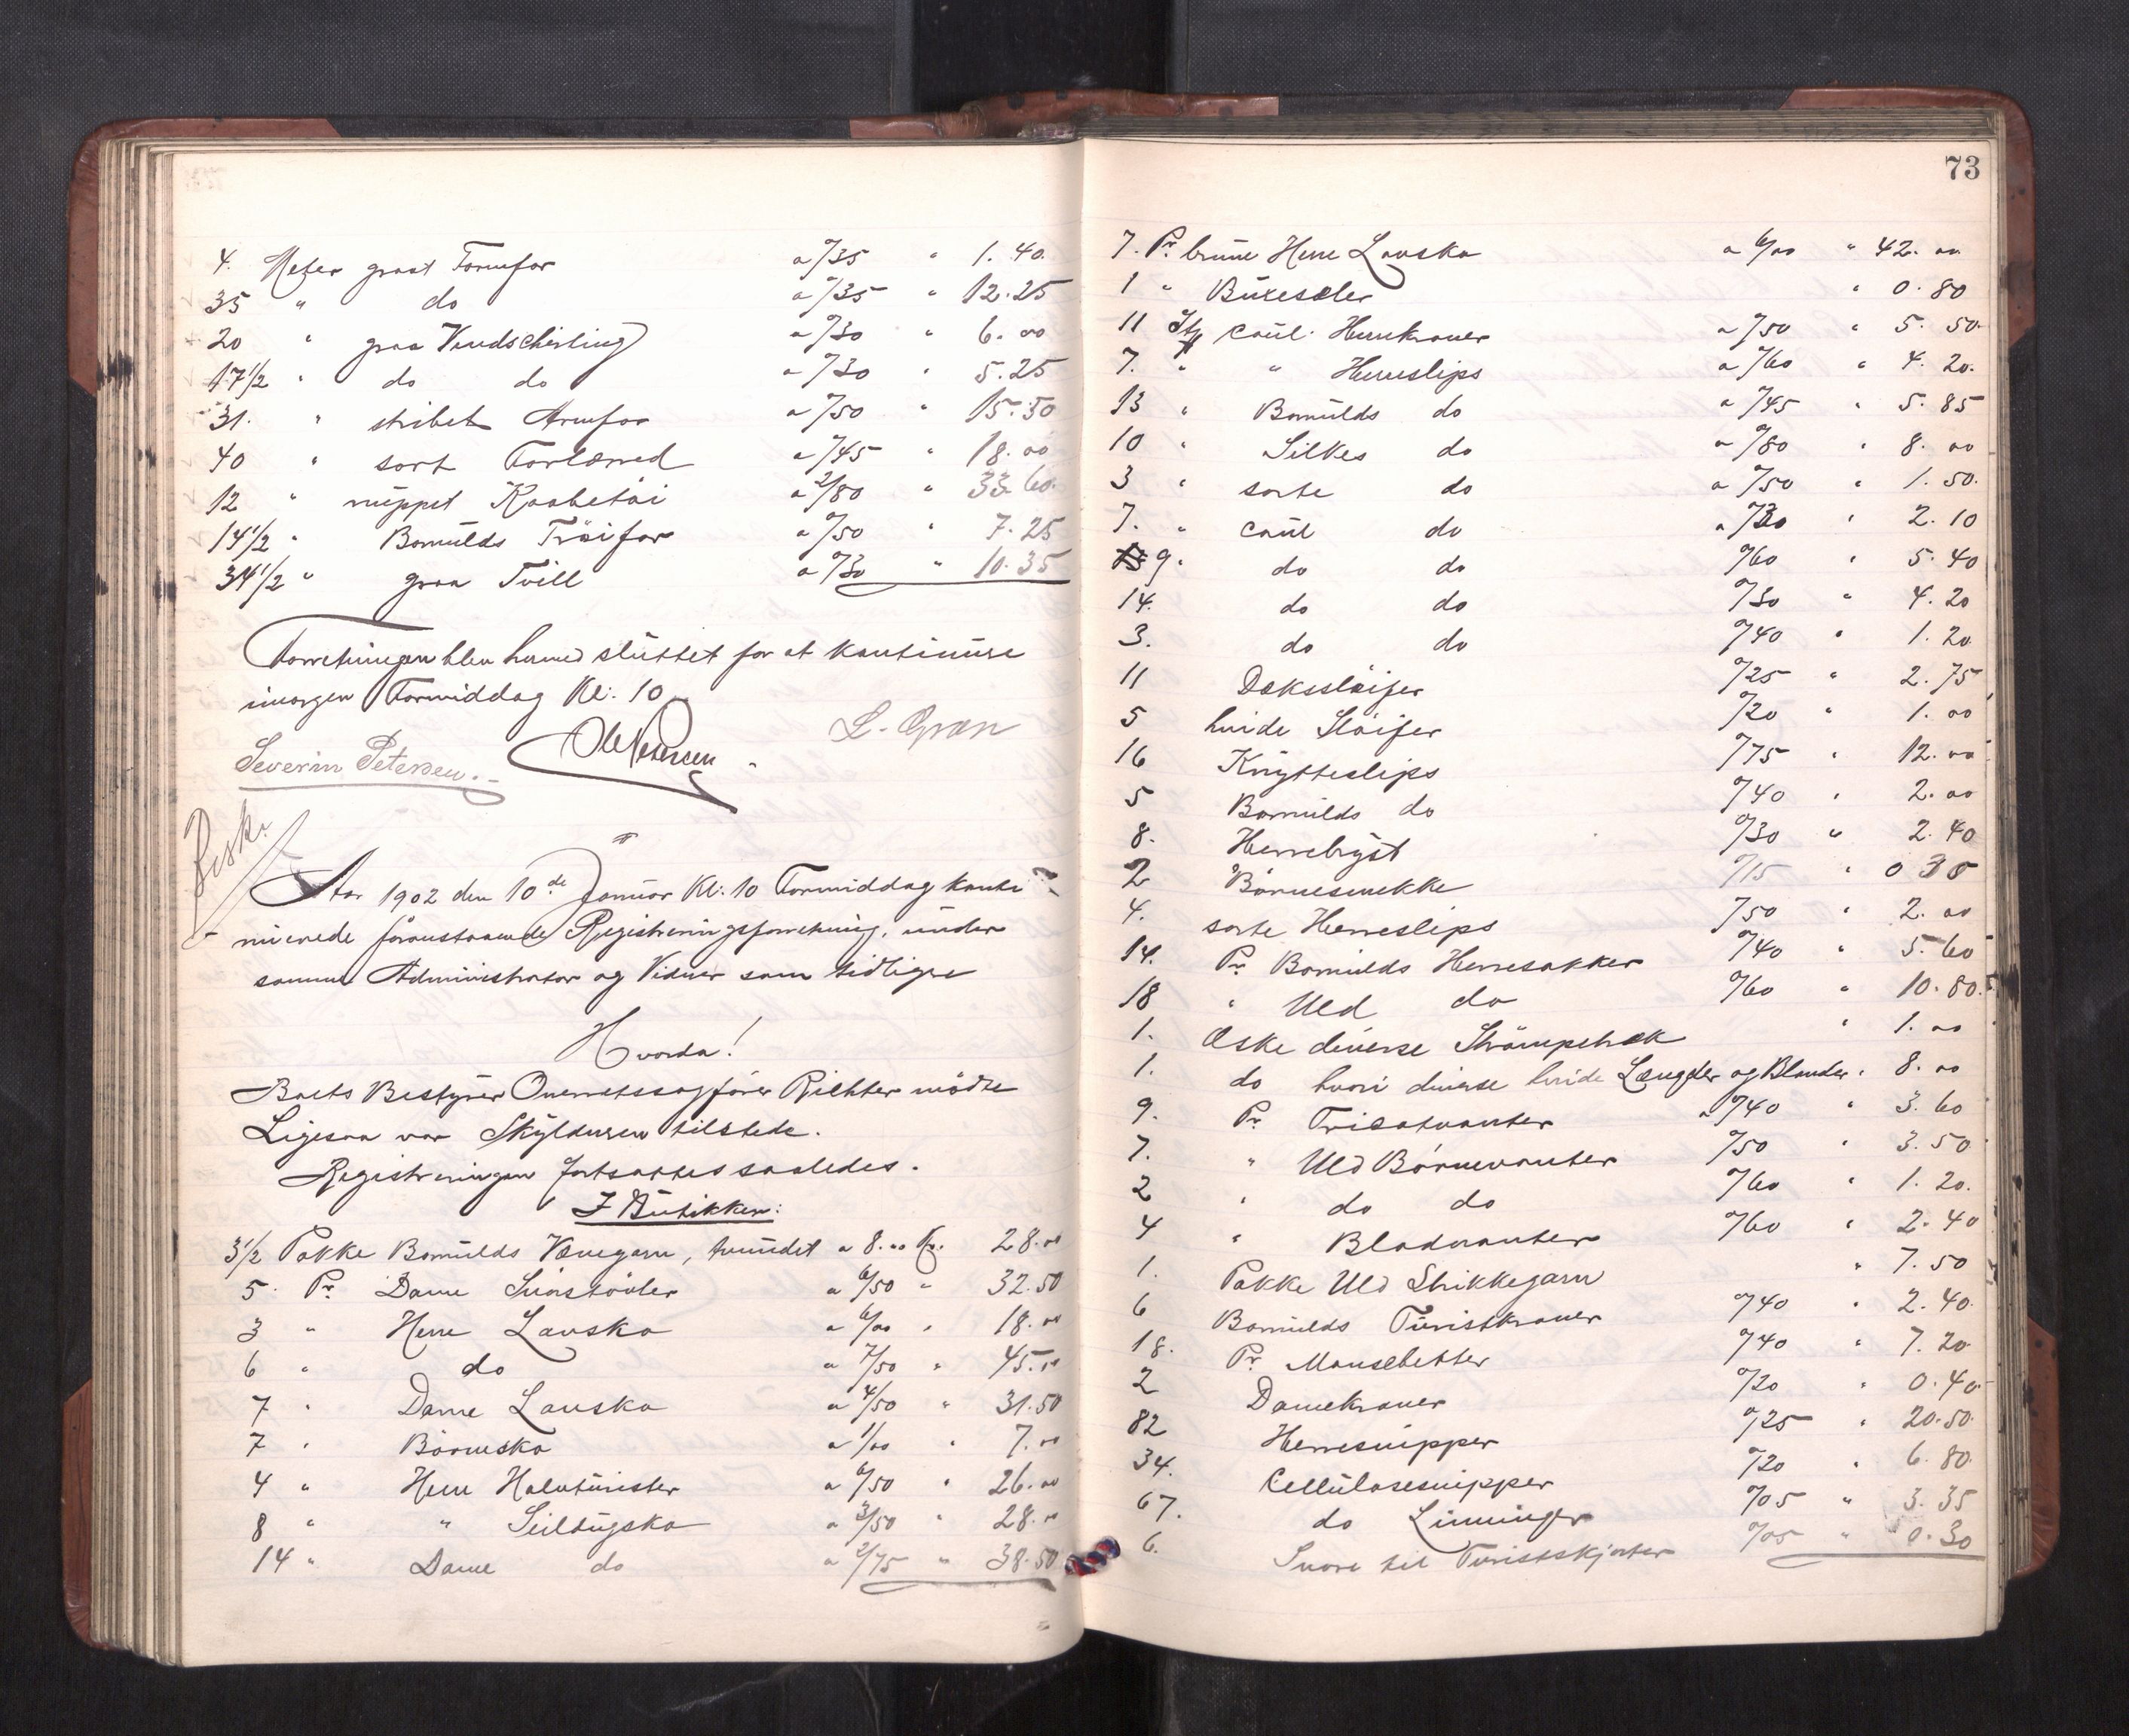 4. Meter graat Formfor a 0/35 " 1.40.
35 " do a 0/35 " 12.25
20 " graa Vendschirting a 0/30 " 6.00
17 1/2 " do do a 0/30 " 5.25
31. " stribet Armfor a 0/50 " 15.50
40 " sort Forlærred a 0/45 " 18.00
12 " nuppet Kaabetöi a 2/80 " 33.60.
14 1/2 " Bomulds Tröifor a 0/50 " 7.25
34 1/2 " graa Tvill a 0/30 " 10.35
Forretningen blev hermed sluttet for at kontinuere
imorgen Formiddag Kl: 10
Severin Petersen. Ole Petersen L. Gran
Aar 1902 den 10de Januar Kl: 10 Formiddag konti
nuerede foranstaaende Registreringsforretning, under
samme Administrator og Vidner som tidligere
Hvorda!
Boets Bestyrer Overretssagförer Richter mödte
Ligesaa var Skyldneren tilstede.
Registreringen fortsattes saaledes.
I Butikken:
3 1/2 Pakke Bomulds Vævegarn, tvundet a 8.00 Kr. 28.00
5. Pr. Dame Snörstövler a 6/50 " 32.50
3 " Herre Lavsko a 6/00 " 18.00
6 " do a 7/50 " 45.00
7 " Dame Lavsko a 4/50 " 31.50
7 " Börnesko a 1/00 " 7.00
4 " Herre Halvturister a 6/50 " 26.00
8 " " Seildugsko a 3/50 " 28.00
14 " Dame do a 2/75 " 38.50
73
7. Pr. brune Herre Lavsko a 6/00 " 42.00
1 " Buxeseler " 0.80
11 Stk coul. Herrekraver a 0/50 " 5.50.
7. " " Herreslips a 0/60 " 4.20.
13 " Bomulds do a 0/45 " 5.85
10 " Silkes do a 0/80 " 8.00
3 " sorte do a 0/50 " 1.50.
7. " coul do a 0/30 " 2.10
9. do do 0/60 " 5.40
14. do do 0/30 " 4.20
3. do do 0/40 " 1.20
11 Dækslöifer 0/25 " 2.75
5 hvide Slöifer 0/20 " 1.00
16 Knytteslips 0/75 " 12.00
5 Bomulds do 0/40 " 2.00
8. Herrebryst 0/30 " 2.40
2 Börnesmekke 0/15 " 0 30
4. sorte Herreslips 0/50 " 2.00
14. Pr. Bomulds Herresokker 0/40 " 5.60
18 " Uld do 0/60 " 10.80.
1. Æske diverse Strömpeskok " 1.00
1. do hvori diverse hvide Længder og Blonder " 8.00
9. Pr. Tricotvanter a 0/40 " 3.60
7. " Uld Börnevanter 0/50 " 3.50
2 " do do 0/60 " 1.20.
4 " Bladvanter 0/60 " 2.40
1. Pakke Uld Strikkegarn " 7.50
6 Bomulds Turistkraver 0/40 " 2.40.
18. Pr. Manschetter 0/40 " 7.20
2 Damekraver 0/20 " 0.40
82 Herresnipper 0/25 " 20.50.
34. Cellulosesnipper 0/20 " 6.80.
67. do Linninger 0/05 " 3.35
6. Snore til Turistskjorter 0/05 " 0.30